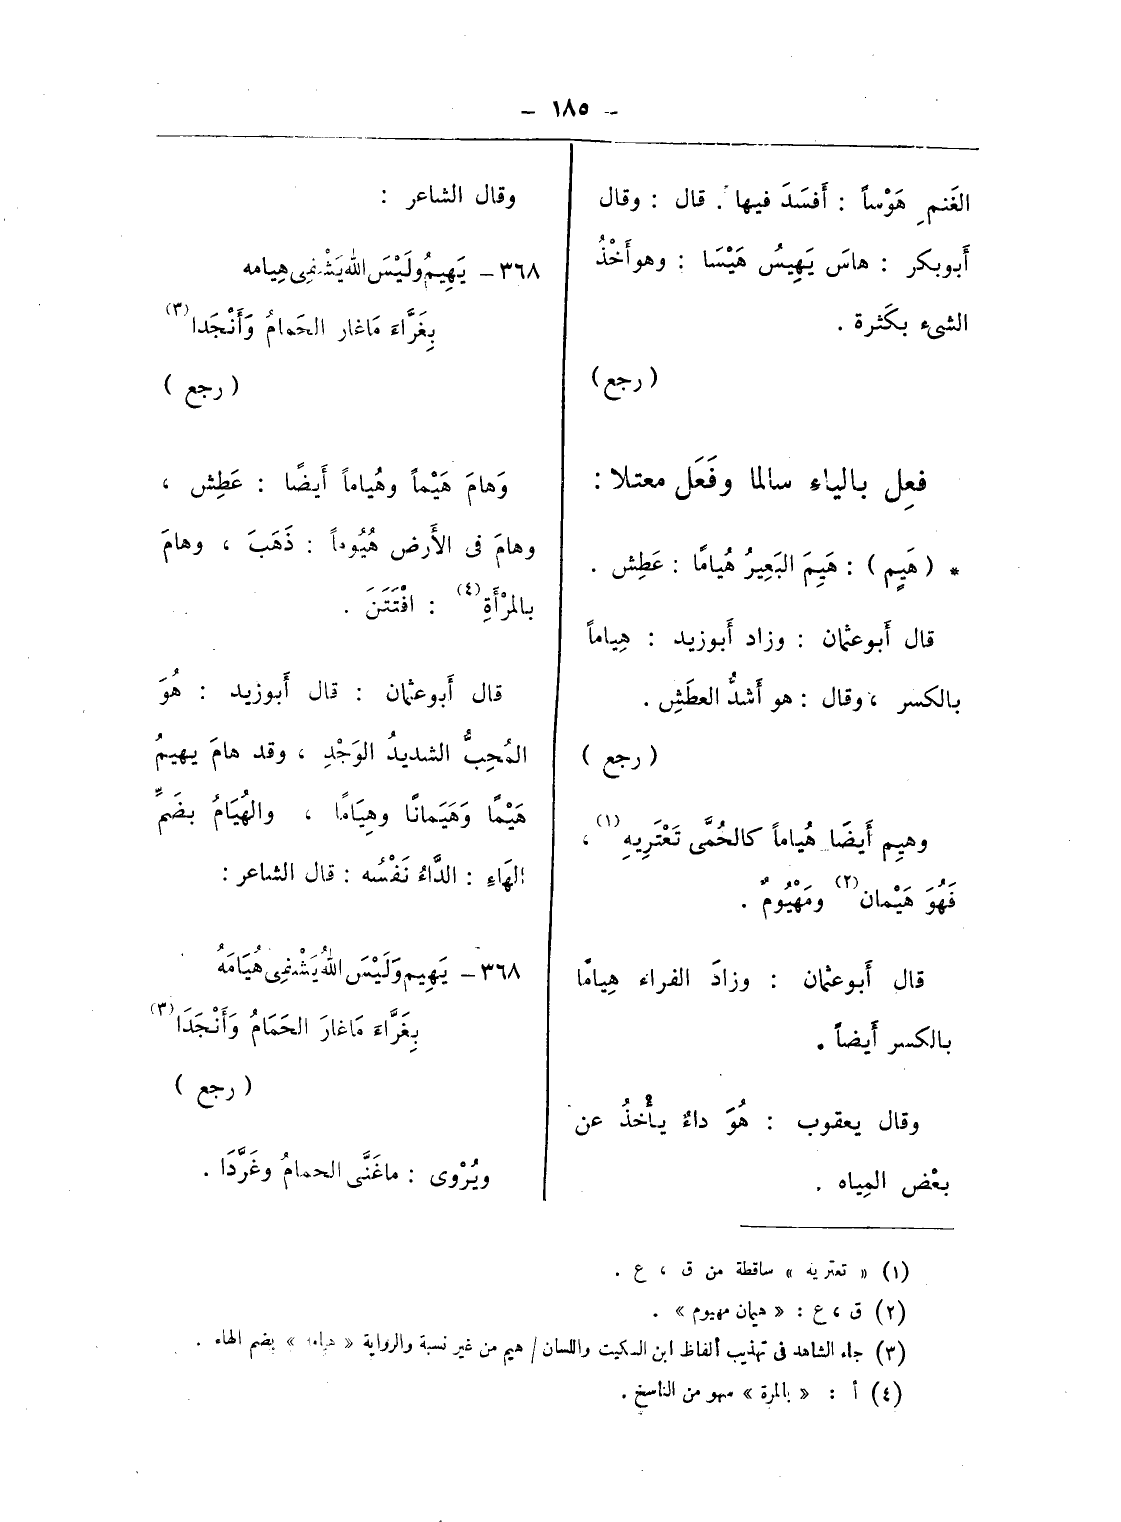 - ١٨٥ -
الغَنمِ هَوْساً : أَفسَدَ فيها . قال : وقال
أَبوبكر : هاسَ يَهِيسُ هَيْسَا : وهو أَخْذُ
الشىء بكَثرة .
( رجع )
فعِل بالياء سالما وفَعَل معتلا :
* ( هَيِم ) : هَيِمَ البَعِيرُ هُيامًا : عَطِش .
قال أَبوعثمان : وزاد أَبوزيد : هِياماً
بالكسر ، وقال : هو أَشدُّ العطَشِ .
( رجع )
وهيِم أَيضَا هُياماً كالحُمَّى تَعْتَرِيهِ (١) ،
فَهُوَ هَيْمان (٢) ومَهْيُومٌ .
قال أَبوعثمان : وزادَ الفراء هِيامًا
بالكسر أَيضاً .
وقال يعقوب : هُوَ داءٌ يأْخذُ عن
بعْض المِياه .
وقال الشاعر :
٣٦٨ - يَهِيمُ ولَيْسَ الله يَشْفِى هِيامه
بِغَرَّاءَ مَاغار الحَمامُ وَأَنْجَدا (٣)
( رجع )
وَهامَ هَيْماً وهُياماً أَيضًا : عَطِش ،
وهامَ فى الأَرض هُيُوماً : ذَهَبَ ، وهامَ
بالمرْأَةِ (٤) : افْتَتَنَ .
قال أَبوعثمان : قال أَبوزيد : هُوَ
المُحِبُّ الشديدُ الوَجْدِ ، وقد هامَ يهيمُ
هَيْمًا وَهَيَمانًا وهِيَامًا ، والهُيَامُ بضَمِّ
الهَاءِ : الدَّاءُ نَفْسُه : قال الشاعر :
٣٦٨ - يَهِيم وَلَيْسَ اللهُ يَشْفِى هُيَامَهُ
بِغَرَّاءَ مَاغارَ الحَمَامُ وَأَنْجَدَا (٣)
( رجع )
ويُرْوى : ماغَنَّى الحمامُ وغَرَّدَا .
(١) « تعتريه » ساقطة من ق ، ع .
(٢) ق ، ع : « هيمان مهيوم » .
(٣) جاء الشاهد فى تهذيب ألفاظ ابن السكيت واللسان / هيم من غير نسبة والرواية « هيامه » بضم الهاء .
(٤) أ : « بالمرة » سهو من الناسخ .